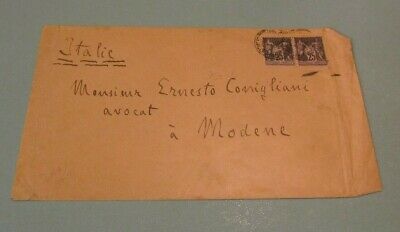 Italie
Monsieur Ernesto Corrigliani
avocat
à Modene
25
25